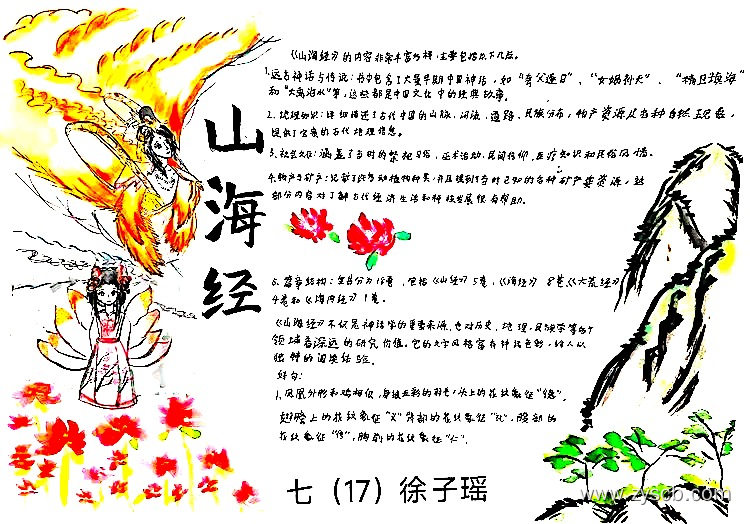 山海经
《山海经》的内容非常丰富多样,主要包括以下几点。
1.远古神话与传说:书中包含了大量早期中国神话,如“夸父逐日”、“女娲补天”、“精卫填海”
和“大禹治水”等,这些都是中国文化中的经典故事。
2.地理知识:详细描述了古代中国的山脉、河流、道路、民族分布、物产资源及各种自然现象,
提供了宝贵的古代地理信息。
3.社会文化:涵盖了当时的祭祀习俗,巫术活动,民间信仰,医疗知识和民俗风情。
4.物产与矿产:记载了许多动植物种类,并且提到了当时已知的各种矿产资源,这
部分内容对了解古代经济生活和科技发展很有帮助。
5.篇章结构:全书分为18卷,包括《山经》5卷,《海经》8卷《大荒经》
4卷和《海内经》1卷。
《山海经》不仅是神话学的重要来源,也对历史、地理、民族学等
领域有深远的研究价值。它的文字风格富有神话色彩,给人以
独特的阅读体验。
好句:
1.凤凰外形和鸡相似,身披五彩的羽毛,头上的花纹象征“德”,
翅膀上的花纹象征“义”背部的花纹象征“礼”,胸部的
花纹象征“信”,腹部的花纹象征“仁”.
七(17)徐子瑶
www.zyscb.com